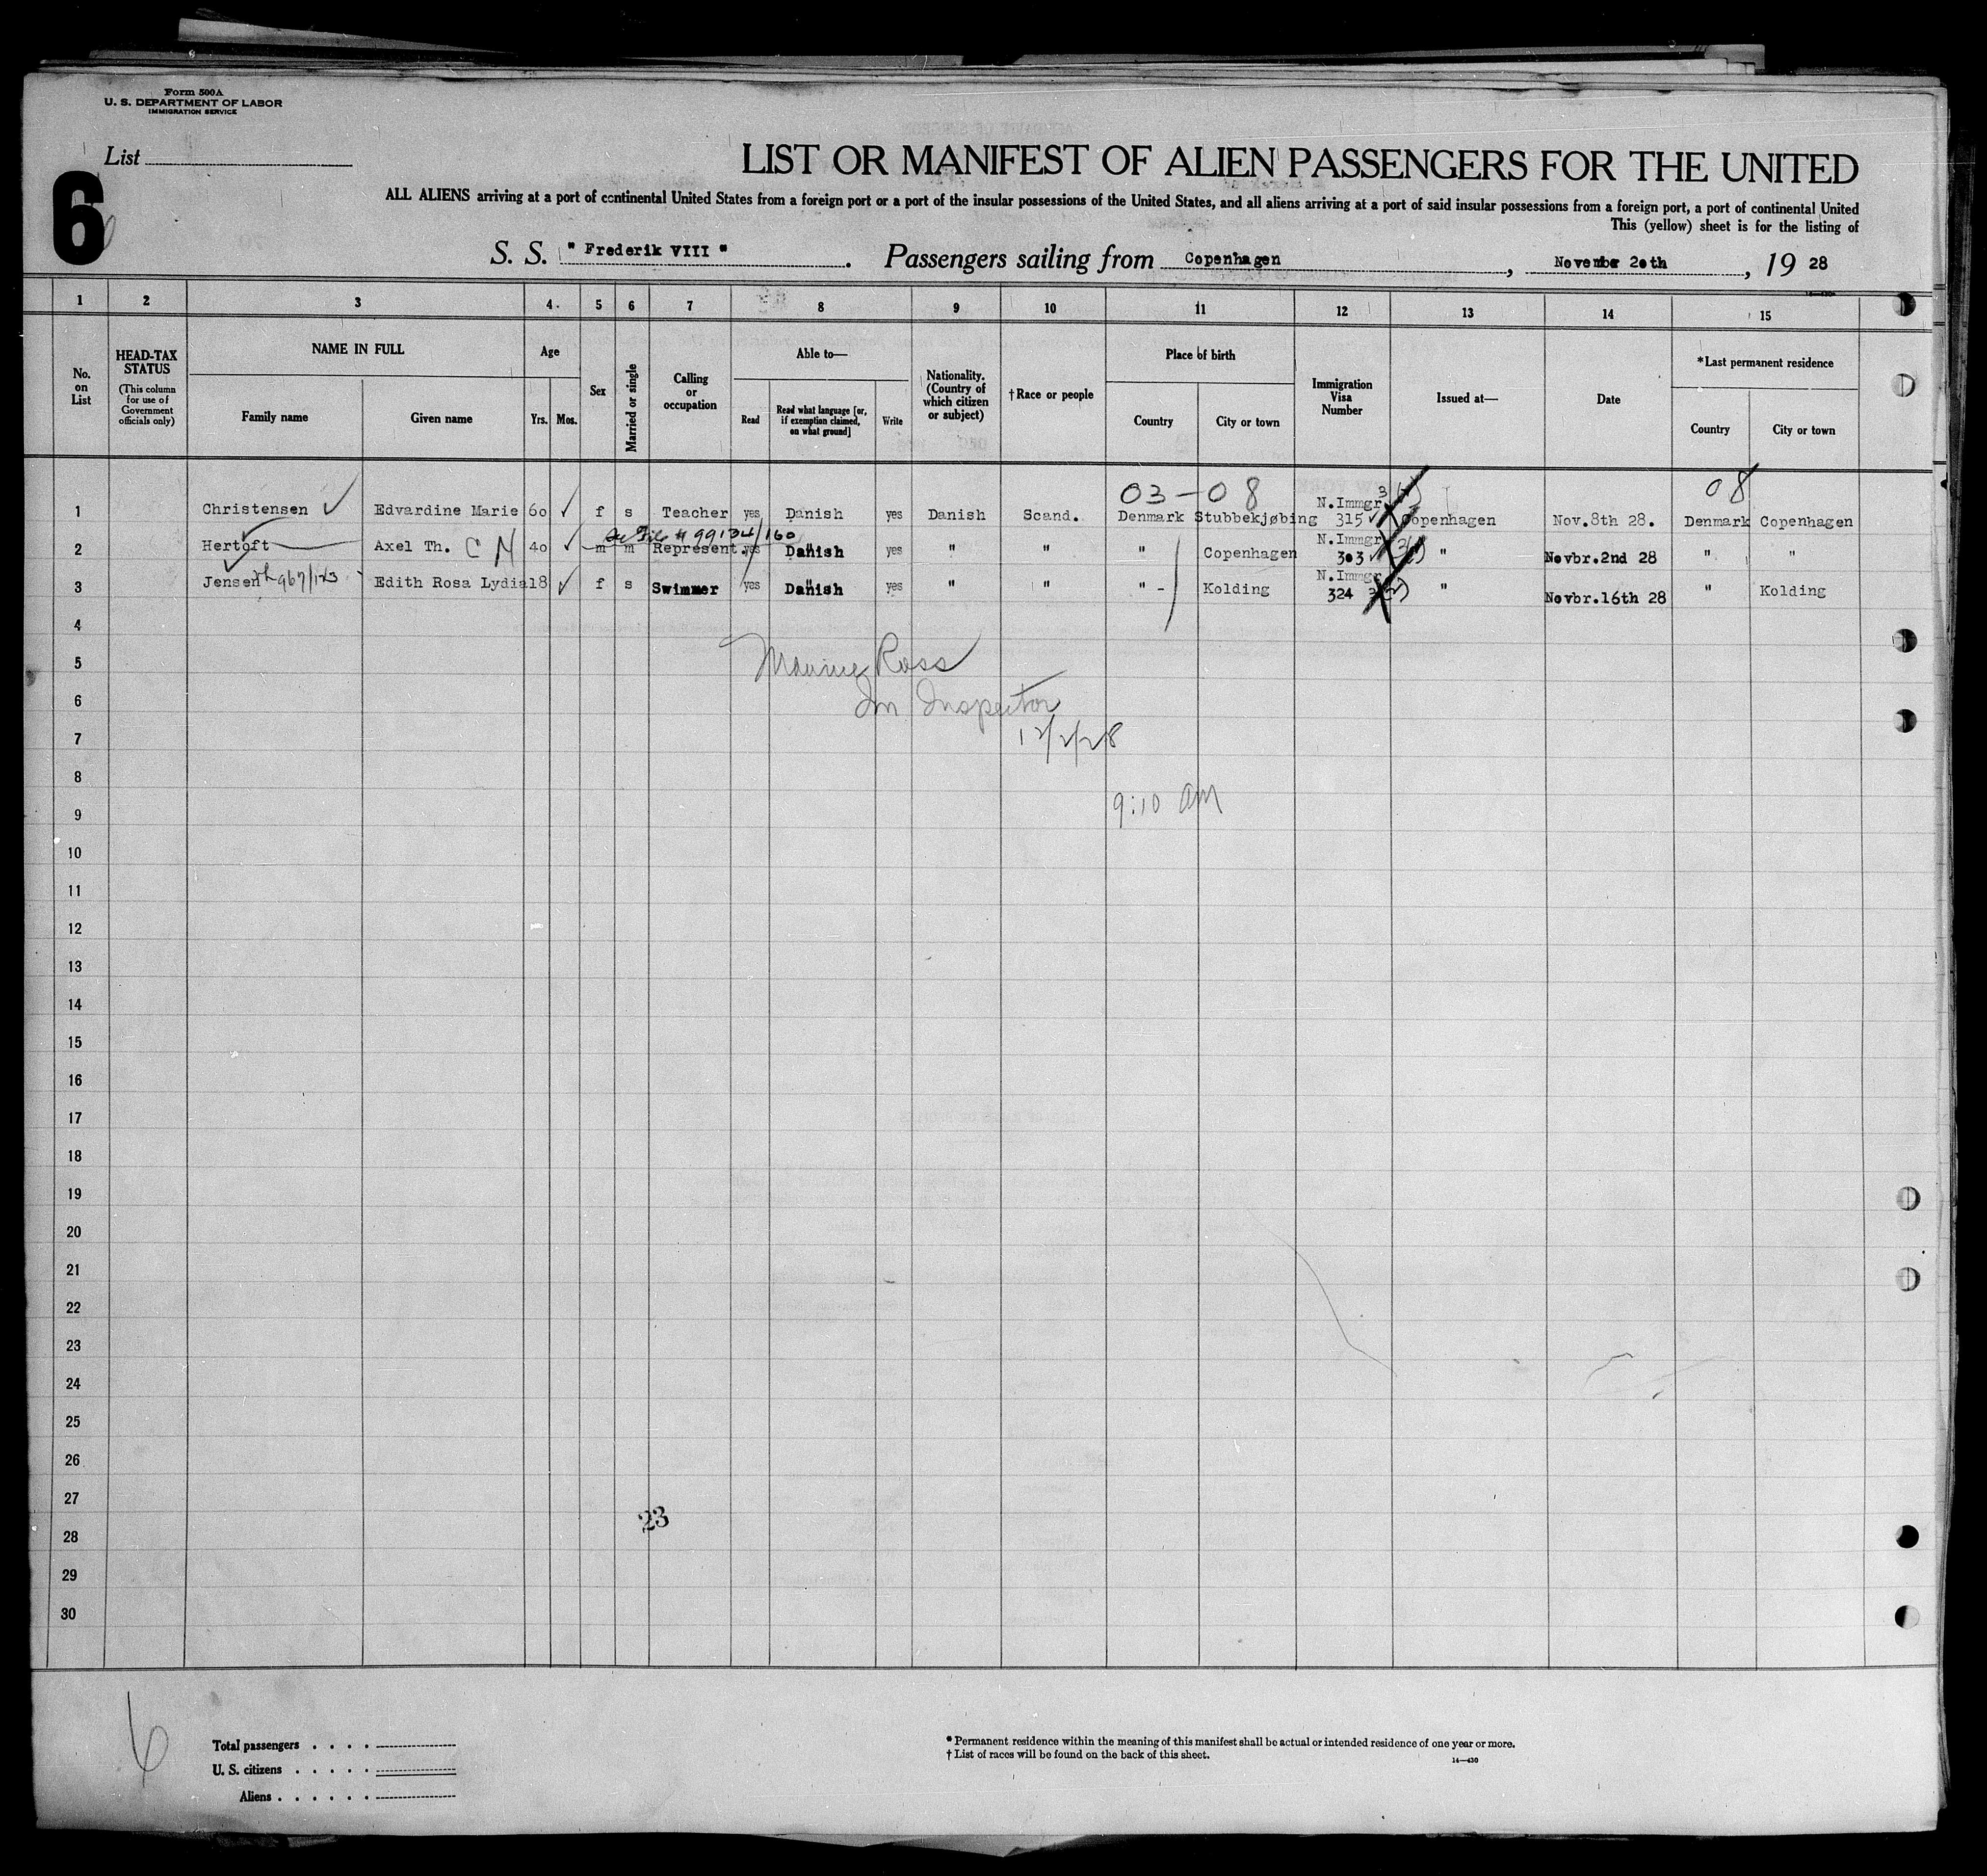 Form 500A
U. S. DEPARTMENT OF LABOR
IMMIGRATION SERVICE
List
6
LIST OR MANIFEST OF ALIEN PASSENGERS FOR THE UNITED
ALL ALIENS arriving at a port of continental United States from a foreign port or a port of the insular possessions of the United States, and all aliens arriving at a port of said insular possessions from a foreign port, a port of continental United
This (yellow) sheet is for the listing of
S. S. "Frederik VIII". Passengers sailing from Copenhagen, November 20th, 19 28
1 2 3 4 5 6 7 8 9 10 11 12 13 14 15
No. on List
HEAD-TAX STATUS
(This column for use of Government officials only)
NAME IN FULL
Family name
Given name
Age
Yrs. Mos.
Sex
Married or single
Calling or occupation
Able to—
Read
Read what language [or, if exemption claimed, on what ground]
Write
Nationality. (Country of which citizen or subject)
†Race or people
Place of birth
Country
City or town
Immigration Visa Number
Issued at—
Date
*Last permanent residence
Country
City or town
03-08
08
1 Christensen Edvardine Marie 60 f s Teacher yes Danish yes Danish Scand. Denmark Stubbekjøbing N.Immgr 315 Copenhagen Nov.8th 28. Denmark Copenhagen
File # 99134/160
2 Hertoft Axel Th. C N 40 m m Represent. yes Danish yes " " " Copenhagen N.Immgr 303 " Novbr.2nd 28 " "
3 Jensen 967/123 Edith Rosa Lydia 18 f s Swimmer yes Danish yes " " " - Kolding N.Immgr 324 " Novbr.16th 28 " Kolding
4
5
Ross
6
Im Inspector
7
12/2/28
8
9
9:10 am
10
11
12
13
14
15
16
17
18
19
20
21
22
23
24
25
26
27
23
28
29
30
6
Total passengers . . . .
U. S. citizens . . . . .
Aliens . . . . . .
* Permanent residence within the meaning of this manifest shall be actual or intended residence of one year or more.
† List of races will be found on the back of this sheet.
14—430